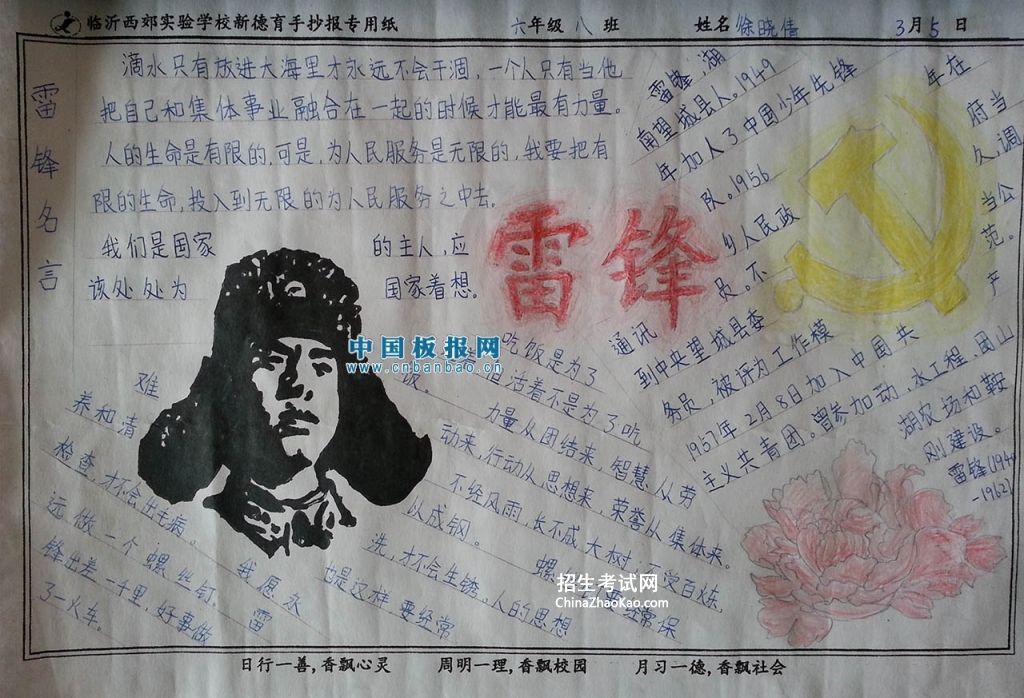 临沂西郊实验学校新德育手抄报专用纸 六年级 八 班 姓名 徐晓倩 3月5日
雷锋名言
滴水只有放进大海里才永远不会干涸，一个人只有当他
把自己和集体事业融合在一起的时候才能最有力量。
人的生命是有限的，可是，为人民服务是无限的，我要把有
限的生命，投入到无限的为人民服务之中去。
我们是国家 的主人，应
该处处为 国家着想。
雷锋
雷锋，湖
南望城县人。1949 年在
年加人了中国少年先锋 府当
队。1956 久，调
乡人民政 当公
员。不 范。
通讯 产
到中央望城县委
务员，被评为工作模
1957年2月8日加入中国共
主义共青团。曾参加动，水工程、团山
湖农场和鞍
刚建设。
雷锋(1940
-1962)
吃饭是为了
活着不是为了吃
饭。 力量从团结来，智慧从劳
动来，行动从思想来，荣誉从集体来。
不经风雨，长不成大树，
百炼，
以成钢。 螺
经常保
养和清
洗，才不会生锈。人的思想
也是这样 要经常
检查，才不会出毛病。
我愿永
远做一个螺丝钉。
雷
锋出差一千里，好事做
了一火车。
难
中国板报网
www.cnbanbao.cn
招生考试网
ChinaZhaoKao.com
日行一善，香飘心灵 周明一理，香飘校园 月习一德，香飘社会